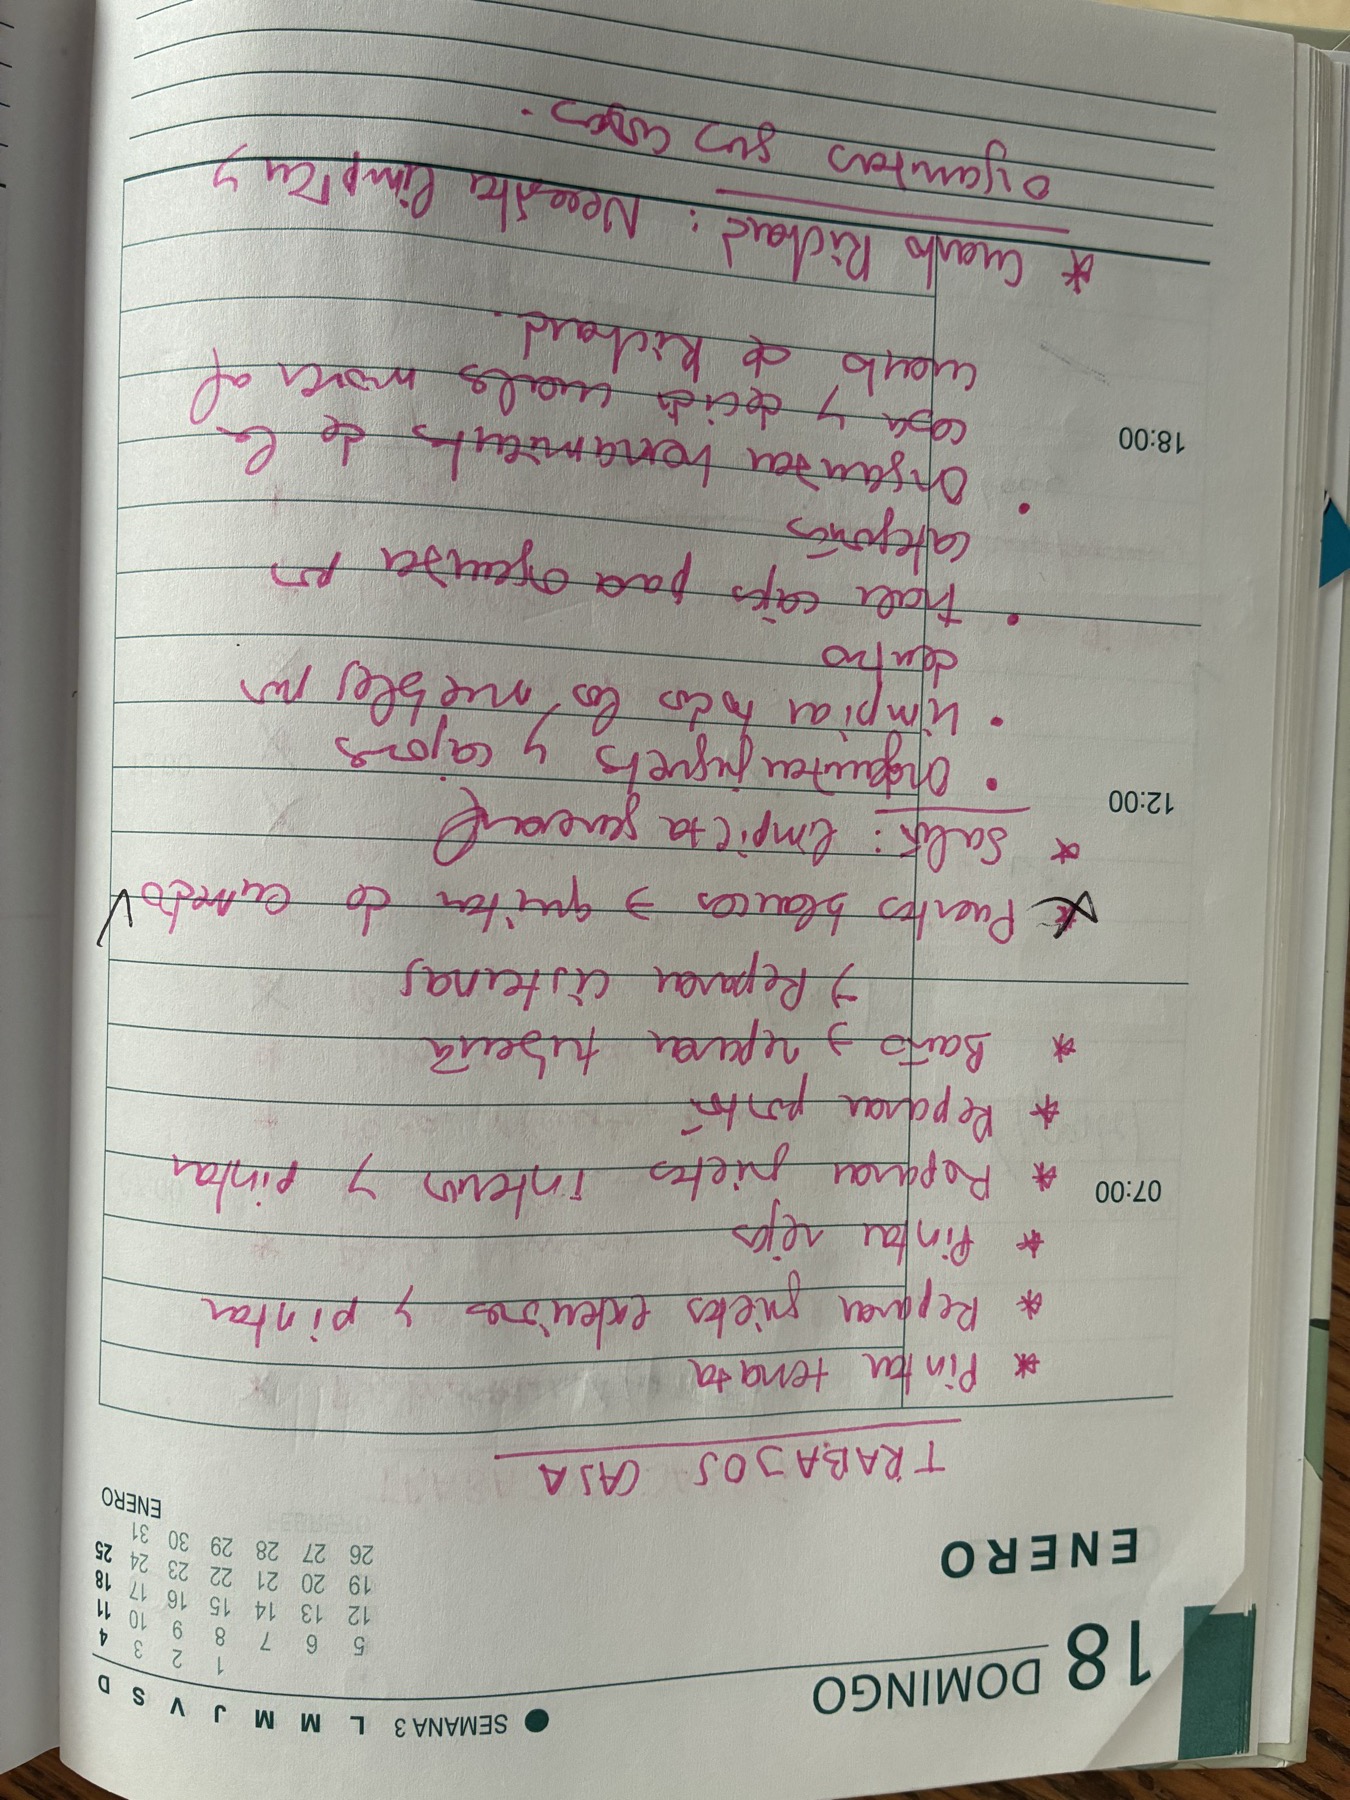 18 DOMINGO
SEMANA 3 L M M J V S D
1 2 3 4
5 6 7 8 9 10 11
12 13 14 15 16 17 18
19 20 21 22 23 24 25
26 27 28 29 30 31
ENERO
ENERO
TRABAJOS CASA
* Pintar terraza
* Reparar grietas exteriores y pintar
* Pintar rejas
07:00
* Reparar grietas interior y pintar
* Reparar portón
* Baño → reparar tubería
→ Reparar cisternas
* Puertas blancas → quitar de enmedio ✓
* Salón: limpieza general
12:00
• Organizar juguetes y cajones
• Limpiar todos los muebles por
dentro
• traer cajas para organizar por
categorías
• Organizar herramientas de la
18:00
casa y decidir cuales mover al
cuarto de Richard.
* Cuarto Richard: Necesita limpieza y
organizar sus cosas.